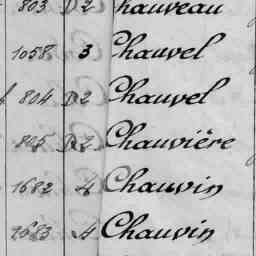 803 D 2 Chauveau
1058 3 Chauvel
804 D 2 Chauvel
805 D 2 Chauvière
1682 4 Chauvin
1683 4 Chauvin